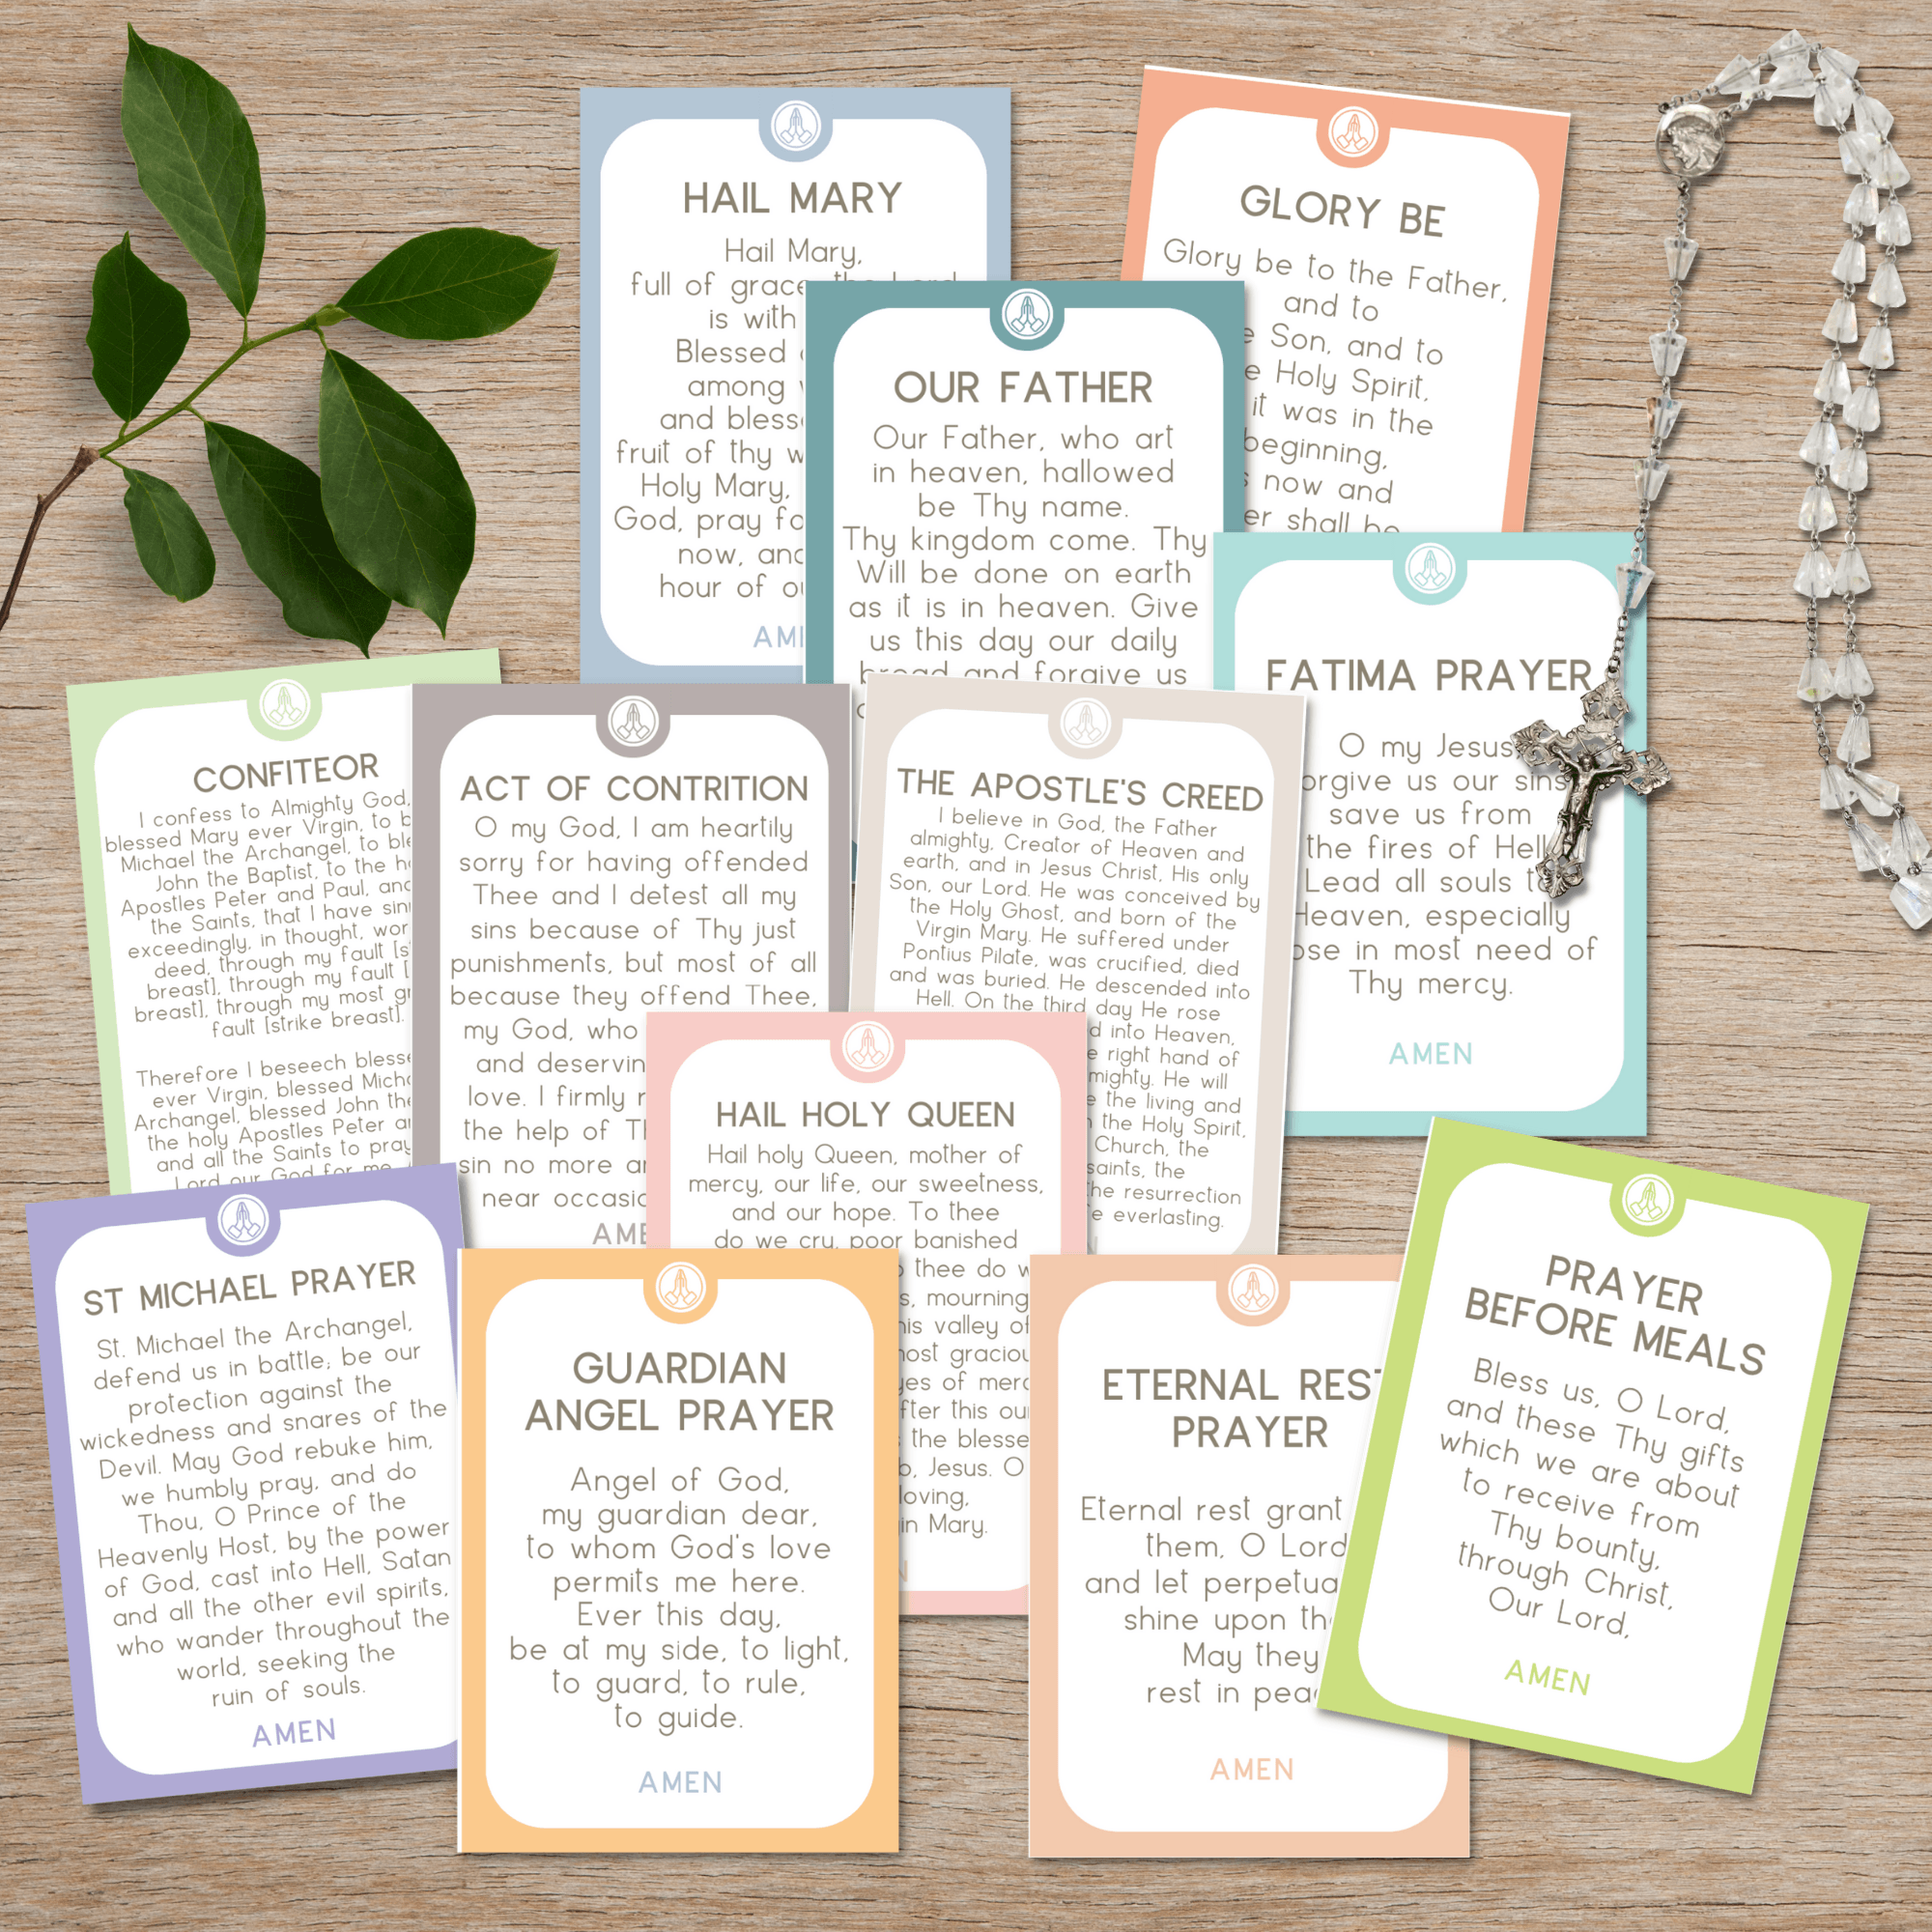 HAIL MARY
Hail Mary,
full of grace
is with
Blessed
among
and
fruit of thy
Holy Mary,
God, pray
now,
hour of
GLORY BE
Glory be to the Father,
and to
Son, and to
Holy Spirit,
it was in the
beginning,
now and
shall be
OUR FATHER
Our Father, who art
in heaven, hallowed
be Thy name.
Thy kingdom come. Thy
Will be done on earth
as it is in heaven. Give
us this day our daily
bread and forgive us
FATIMA PRAYER
O my Jesus
us our sins
save us from
the fires of Hell
Lead all souls
Heaven, especially
in most need of
Thy mercy.
AMEN
CONFITEOR
I confess to Almighty God,
blessed Mary ever Virgin, to
Michael the Archangel, to
John the Baptist, to the
Apostles Peter and Paul,
the Saints, that I have
exceedingly, in thought,
deed, through my fault
breast], through my fault
breast], through my most
fault [strike breast].
Therefore I beseech
ever Virgin, blessed
Archangel, blessed John
the holy Apostles Peter
and all the Saints to pray
Lord our God for me
ACT OF CONTRITION
O my God, I am heartily
sorry for having offended
Thee and I detest all my
sins because of Thy just
punishments, but most of all
because they offend Thee,
my God, who
and
love. I firmly
the help of
sin no more
near
THE APOSTLE'S CREED
I believe in God, the Father
almighty, Creator of Heaven and
earth, and in Jesus Christ, His only
Son, our Lord. He was conceived by
the Holy Ghost, and born of the
Virgin Mary. He suffered under
Pontius Pilate, was crucified, died
and was buried. He descended into
Hell. On the third day He rose
into Heaven,
right hand of
He will
the living and
the Holy Spirit,
Church, the
the
resurrection
everlasting.
HAIL HOLY QUEEN
Hail holy Queen, mother of
mercy, our life, our sweetness,
and our hope. To thee
do we cry, poor banished
thee do
mourning
valley of
of
this
the
Jesus. O
loving,
Mary.
ST MICHAEL PRAYER
St. Michael the Archangel,
defend us in battle; be our
protection against the
wickedness and snares of the
Devil. May God rebuke him,
we humbly pray, and do
Thou, O Prince of the
Heavenly Host, by the power
of God, cast into Hell, Satan
and all the other evil spirits,
who wander throughout the
world, seeking the
ruin of souls.
AMEN
GUARDIAN
ANGEL PRAYER
Angel of God,
my guardian dear,
to whom God's love
permits me here.
Ever this day,
be at my side, to light,
to guard, to rule,
to guide.
AMEN
ETERNAL REST
PRAYER
Eternal rest grant
them, O Lord
and let
shine upon
May they
rest in
AMEN
PRAYER
BEFORE MEALS
Bless us, O Lord,
and these Thy gifts
which we are about
to receive from
Thy bounty,
through Christ,
Our Lord,
AMEN